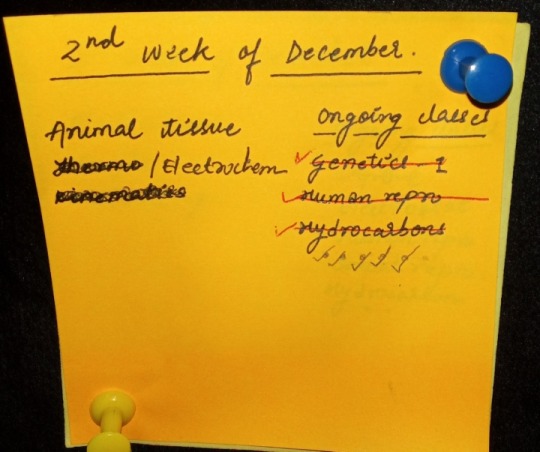 2nd Week of December.
Animal tissue
thermo / Electrochem
Kinematics
Ongoing classes
Genetics - 1
Human repro
Hydrocarbons